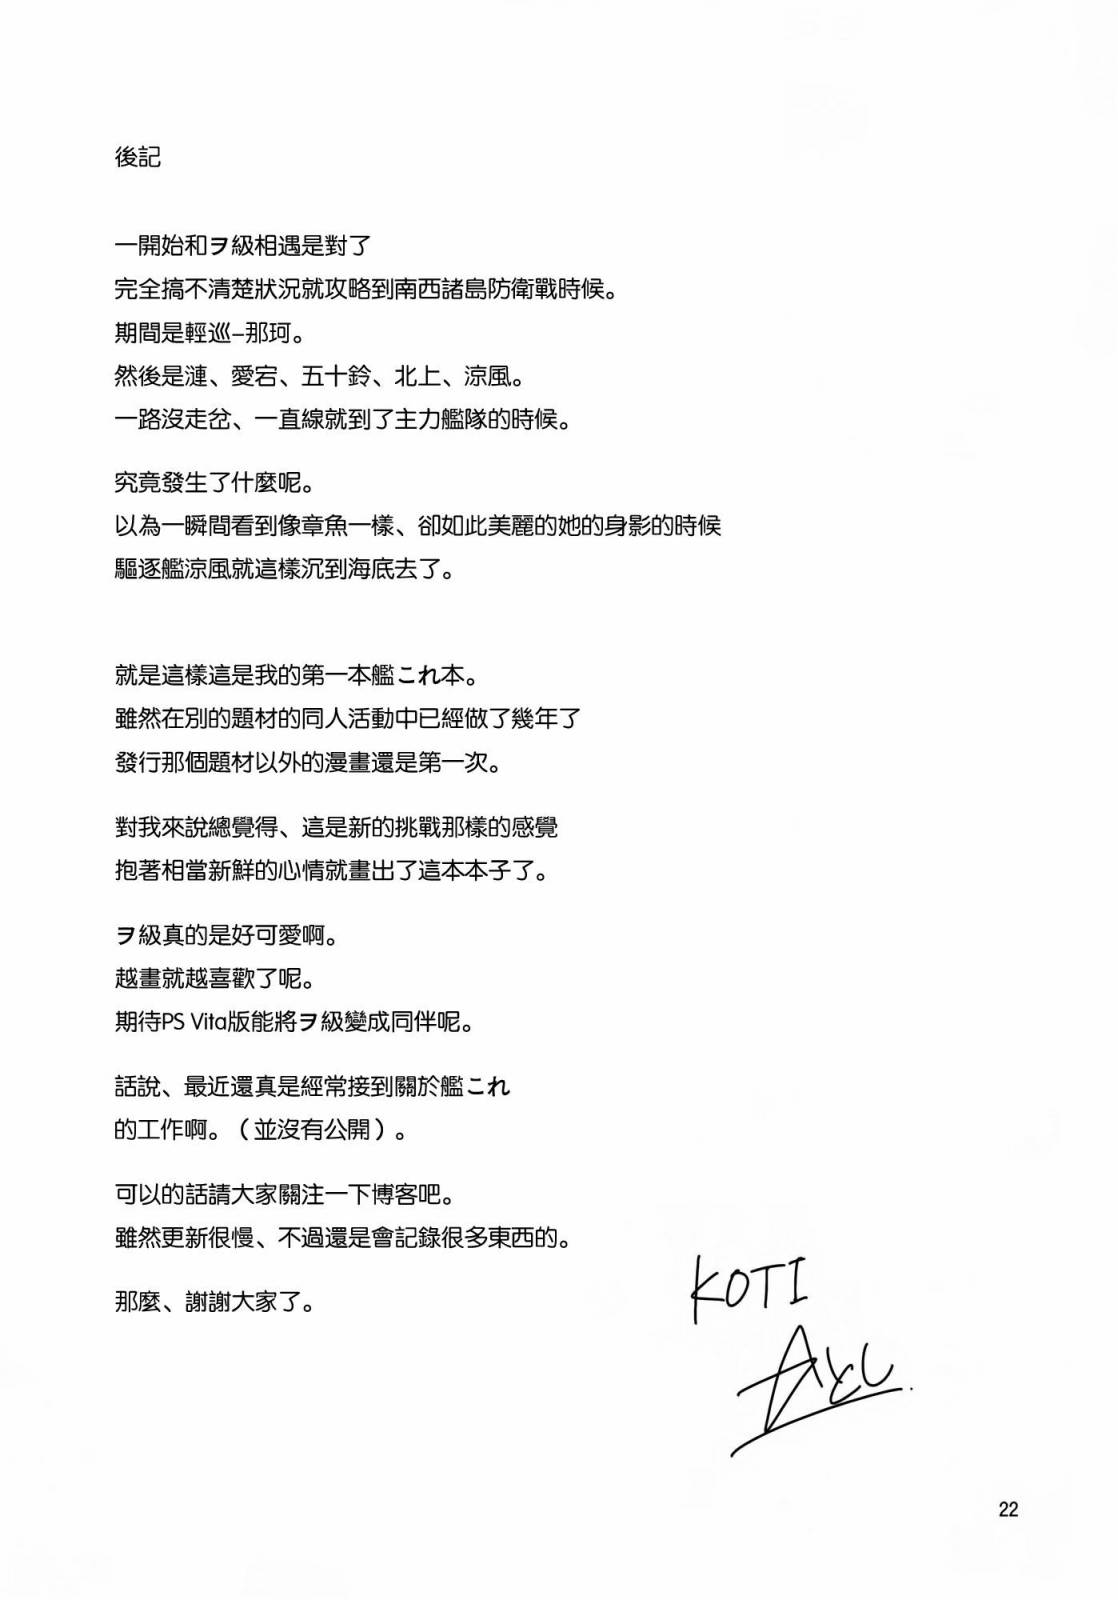 後記
一開始和ヲ級相遇是對了
完全搞不清楚狀況就攻略到南西諸島防衛戰時候。
期間是輕巡–那珂。
然後是漣、愛宕、五十鈴、北上、涼風。
一路沒走岔、一直線就到了主力艦隊的時候。
究竟發生了什麼呢。
以為一瞬間看到像章魚一樣、卻如此美麗的她的身影的時候
驅逐艦涼風就這樣沉到海底去了。
就是這樣這是我的第一本艦これ本。
雖然在別的題材的同人活動中已經做了幾年了
發行那個題材以外的漫畫還是第一次。
對我來說總覺得、這是新的挑戰那樣的感覺
抱著相當新鮮的心情就畫出了這本本子了。
ヲ級真的是好可愛啊。
越畫就越喜歡了呢。
期待PS Vita版能將ヲ級變成同伴呢。
話說、最近還真是經常接到關於艦これ
的工作啊。（並沒有公開）。
可以的話請大家關注一下博客吧。
雖然更新很慢、不過還是會記錄很多東西的。
那麼、謝謝大家了。
KOTI
22